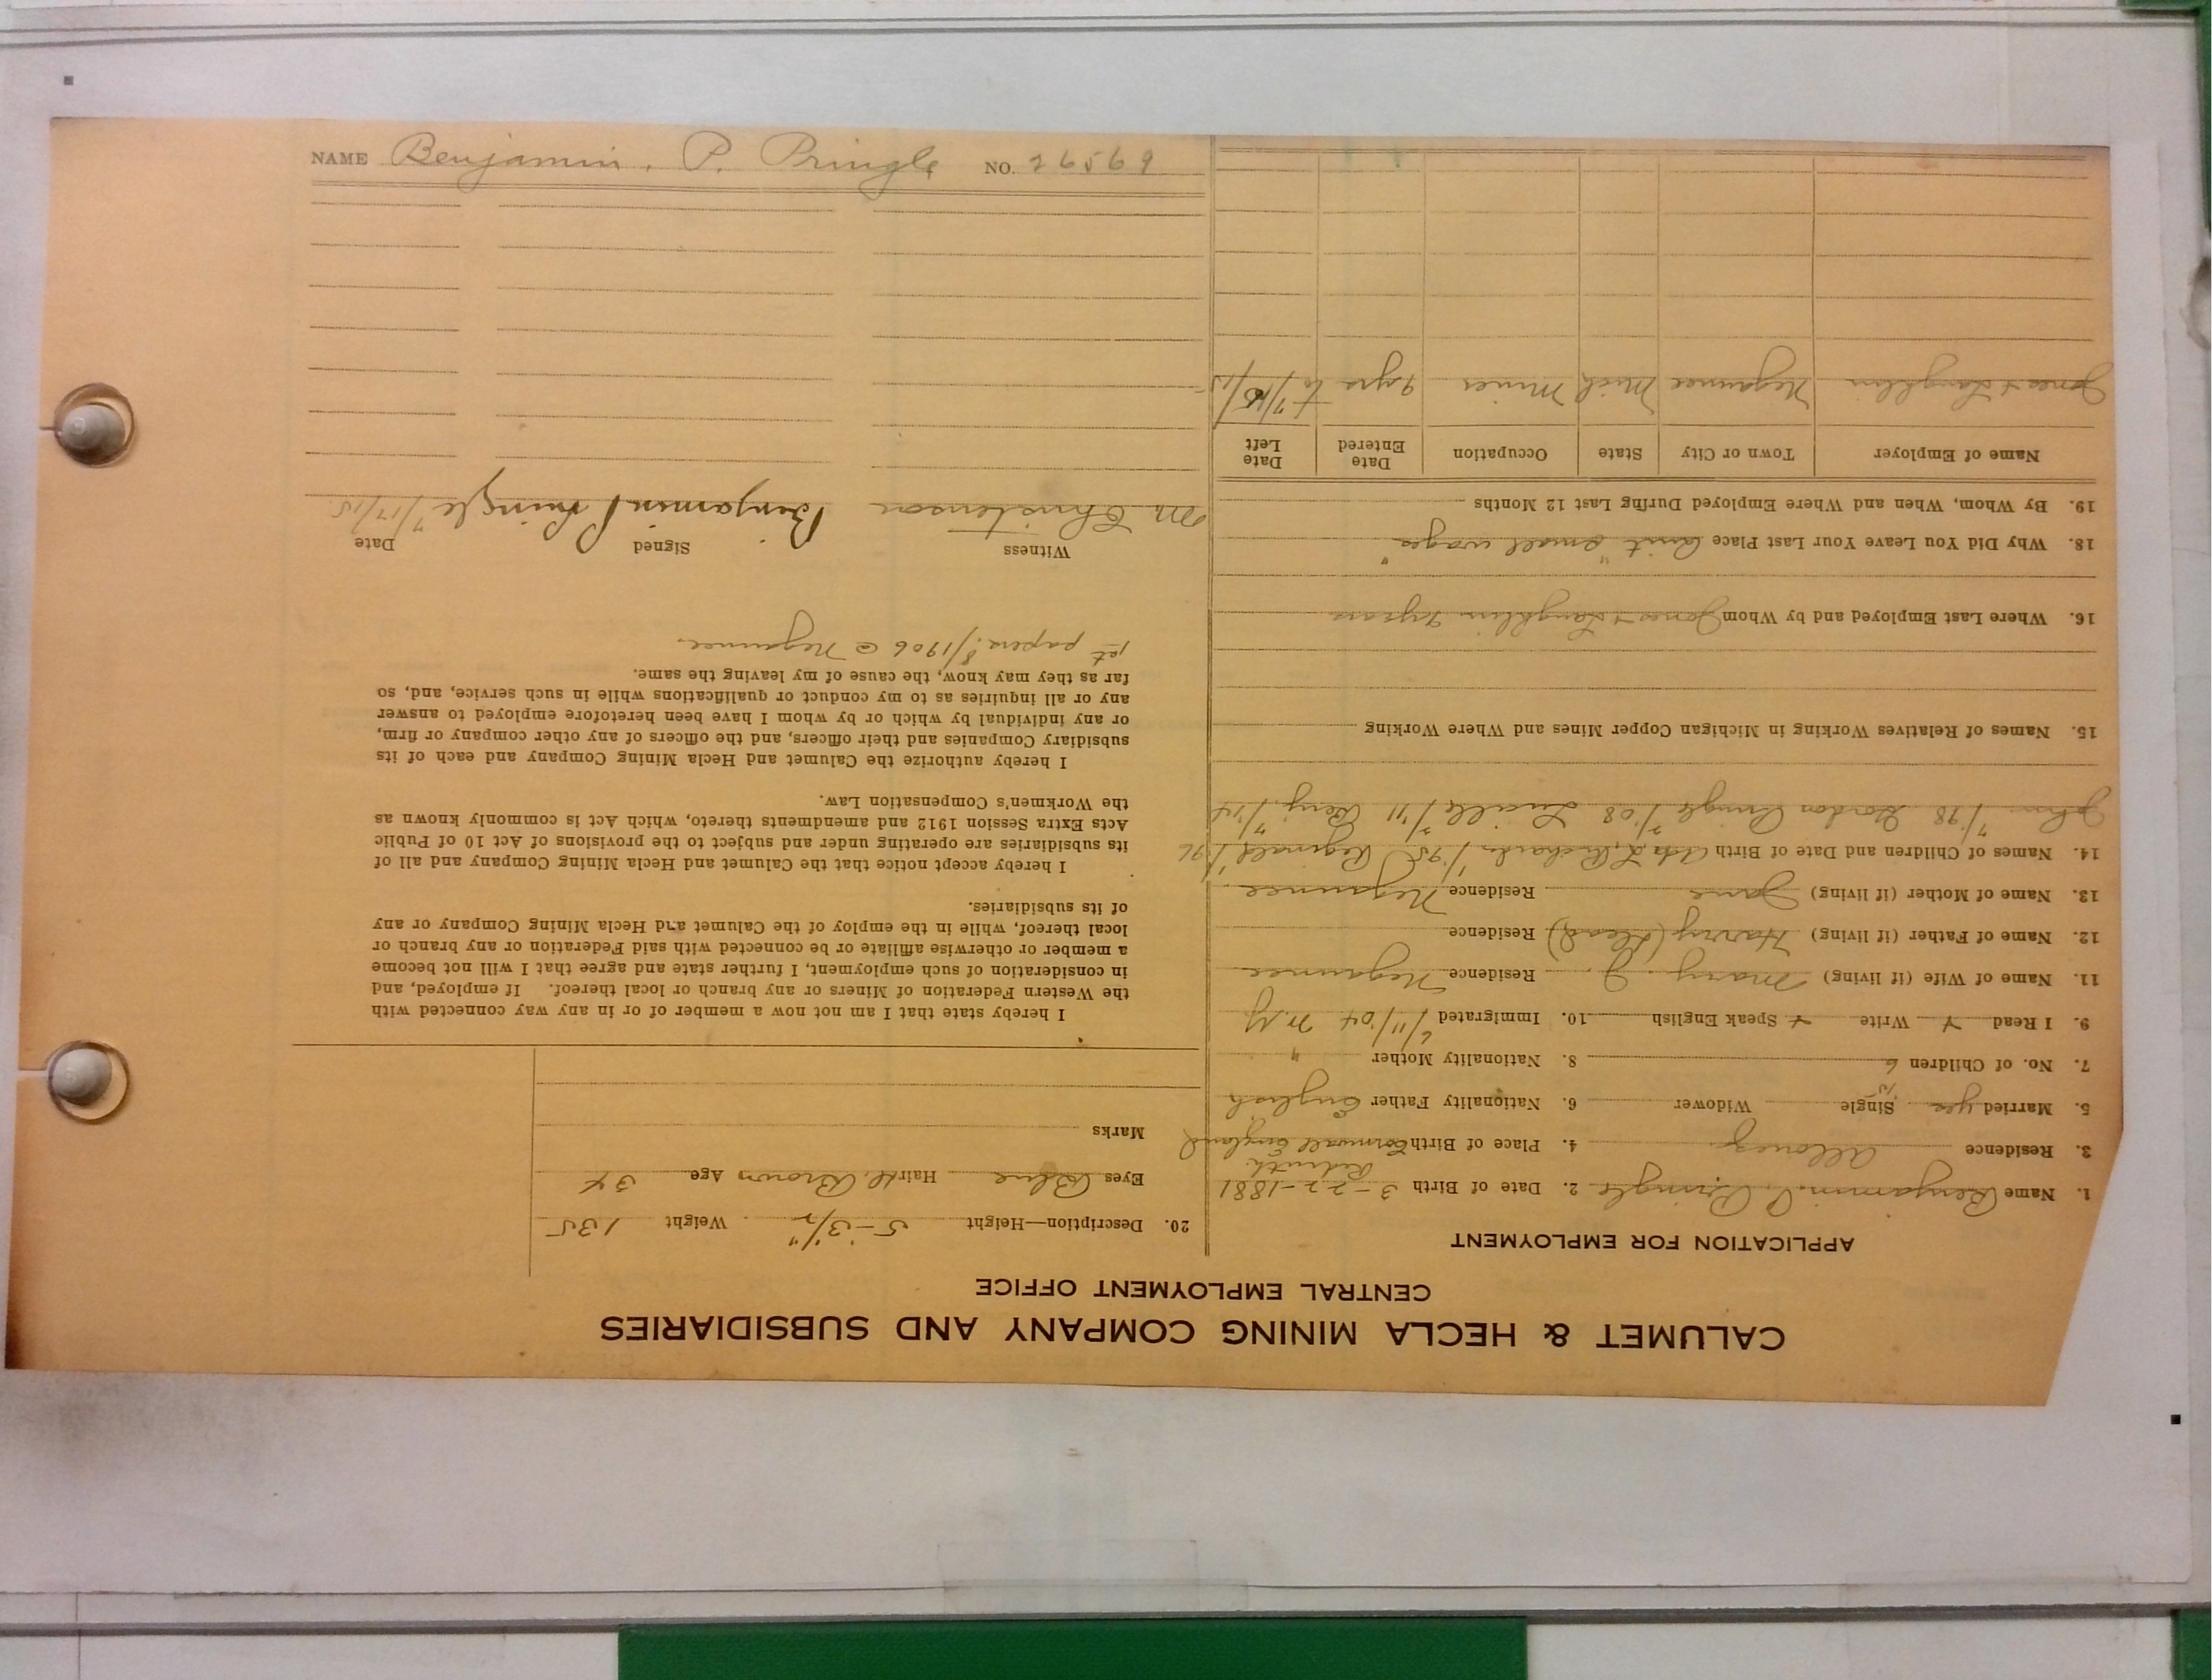 CALUMET & HECLA MINING COMPANY AND SUBSIDIARIES
CENTRAL EMPLOYMENT OFFICE
APPLICATION FOR EMPLOYMENT
1. Name Benjamin. P. Pringle 2. Date of Birth 3-22-1881
Redruth
3. Residence Allouez 4. Place of Birth Cornwall England
5. Married yes Single Widower 6. Nationality Father English
7. No. of Children 6 8. Nationality Mother "
9. I Read + Write + Speak English 10. Immigrated 6/11/04 N.Y
11. Name of Wife (if living) Mary. J. Residence Negaunee
12. Name of Father (if living) Harry (Dead) Residence
13. Name of Mother (if living) Jane Residence Negaunee
14. Names of Children and Date of Birth Ada L, Richards 1/95 Reginald 1/96
John 7/98 Gordon Pringle 7/08 Lucille 7/11 Benj. 7/14
15. Names of Relatives Working in Michigan Copper Mines and Where Working
16. Where Last Employed and by Whom Jones & Laughlin
18. Why Did You Leave Your Last Place Quit "small wages"
19. By Whom, When and Where Employed During Last 12 Months
Name of Employer Town or City State Occupation Date Entered Date Left
Jones & Laughlin Negaunee Mich Miner 9 yrs to 7/15/15
20. Description—Height 5'-3 1/2" Weight 135
Eyes Blue Hair Lt. Brown Age 34
Marks
I hereby state that I am not now a member of or in any way connected with
the Western Federation of Miners or any branch or local thereof. If employed, and
in consideration of such employment, I further state and agree that I will not become
a member or otherwise affiliate or be connected with said Federation or any branch or
local thereof, while in the employ of the Calumet and Hecla Mining Company or any
of its subsidiaries.
I hereby accept notice that the Calumet and Hecla Mining Company and all of
its subsidiaries are operating under and subject to the provisions of Act 10 of Public
Acts Extra Session 1912 and amendments thereto, which Act is commonly known as
the Workmen's Compensation Law.
I hereby authorize the Calumet and Hecla Mining Company and each of its
subsidiary Companies and their officers, and the officers of any other company or firm,
or any individual by which or by whom I have been heretofore employed to answer
any or all inquiries as to my conduct or qualifications while in such service, and, so
far as they may know, the cause of my leaving the same.
1st papers. 8/1906 @ Negaunee
Witness Signed Date
M Christenson Benjamin P Pringle 7/17/15
NAME Benjamin. P. Pringle NO. 26569